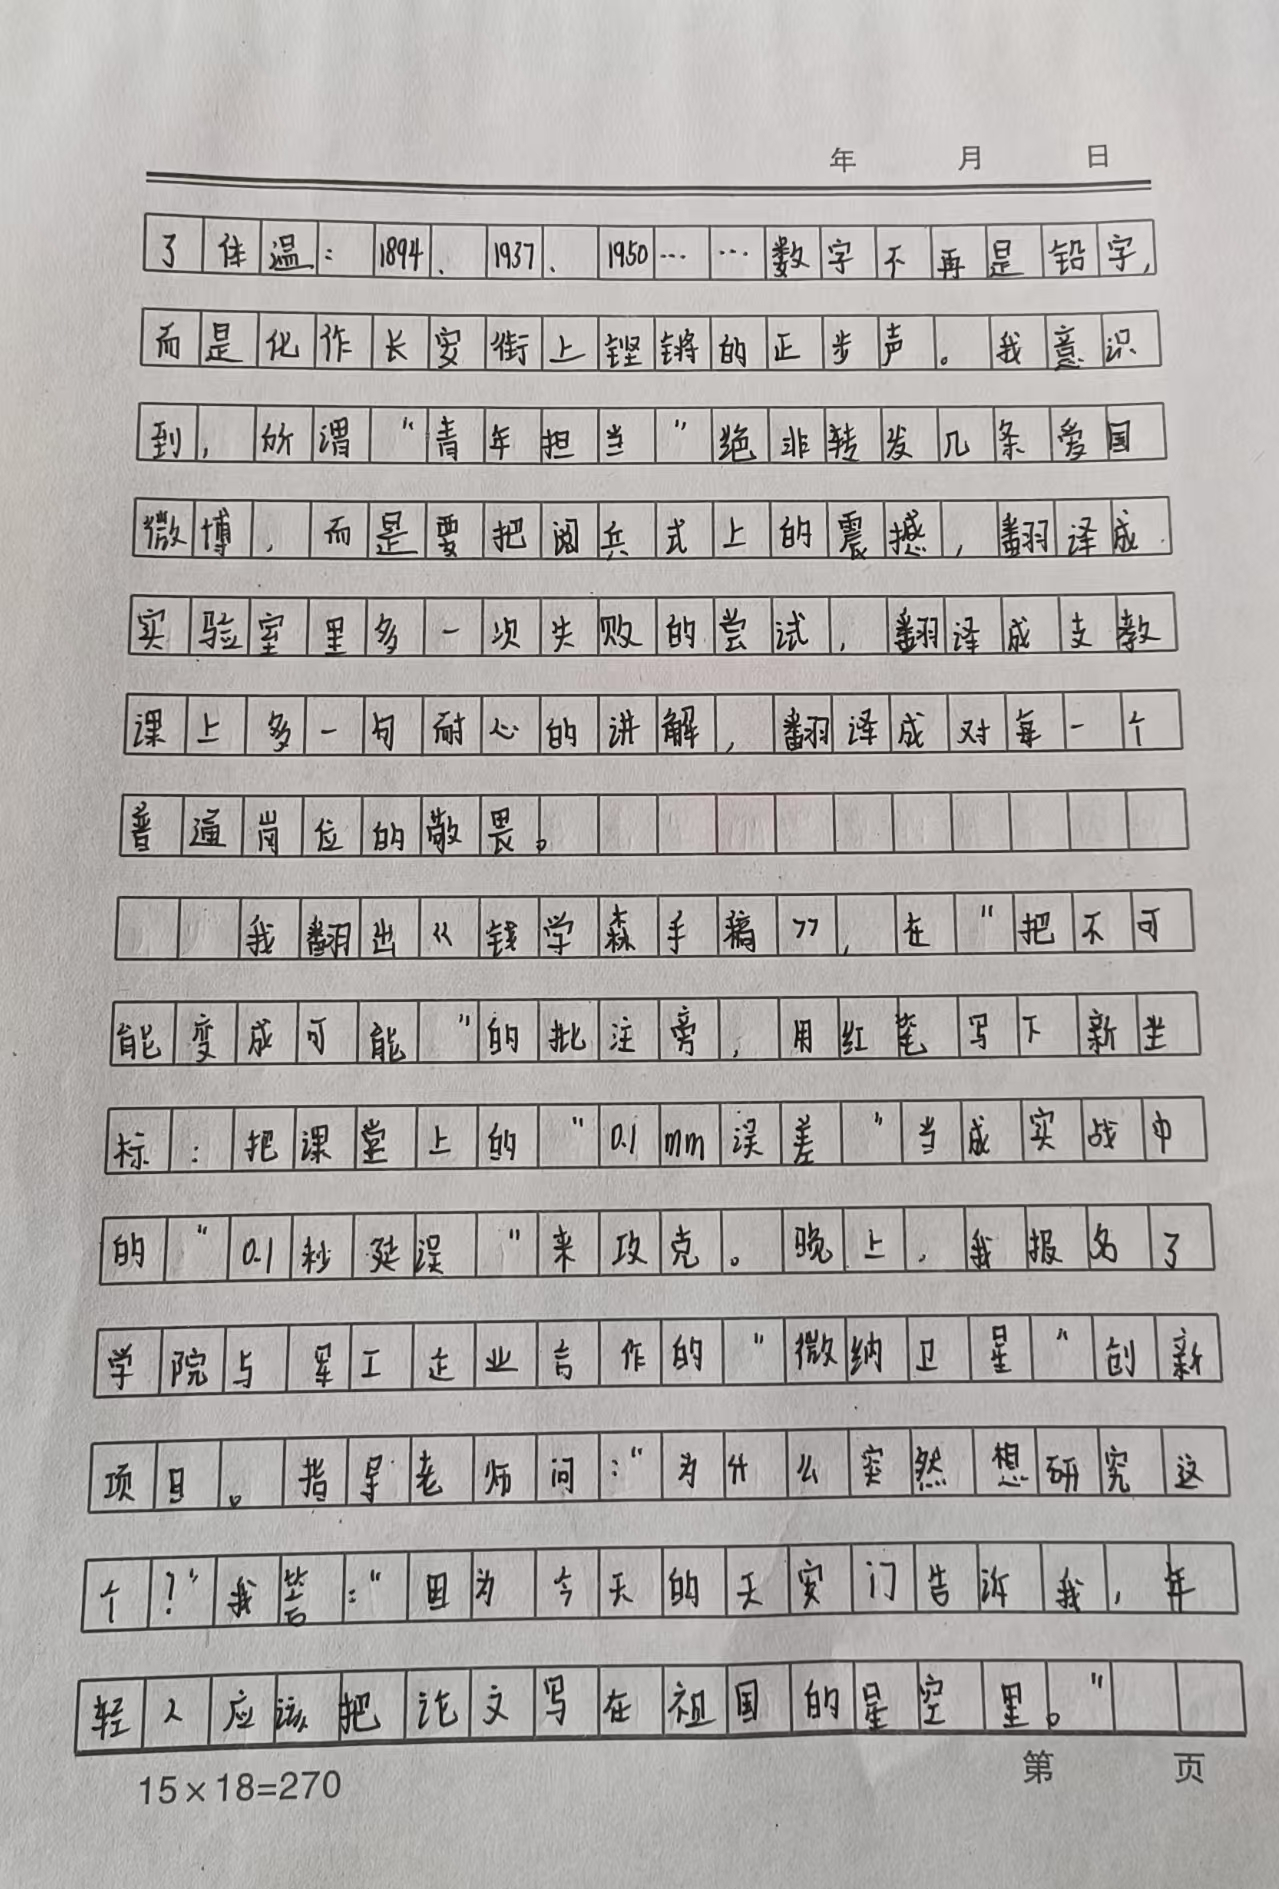 年 月 日
了体温：1894、1937、1950……数字不再是铅字，
而是化作长安街上铿锵的正步声。我意识
到，所谓“青年担当”绝非转发几条爱国
微博，而是要把阅兵式上的震撼，翻译成
实验室里多一次失败的尝试，翻译成支教
课上多一句耐心的讲解，翻译成对每一个
普通岗位的敬畏。
我翻出《钱学森手稿》，在“把不可
能变成可能”的批注旁，用红笔写下新坐
标：把课堂上的“0.1mm误差”当成实战中
的“0.1秒延误”来攻克。晚上，我报名了
学院与军工企业合作的“微纳卫星”创新
项目。指导老师问：“为什么突然想研究这
个？”我答：“因为今天的天安门告诉我，年
轻人应该把论文写在祖国的星空里。”
15×18=270 第 页